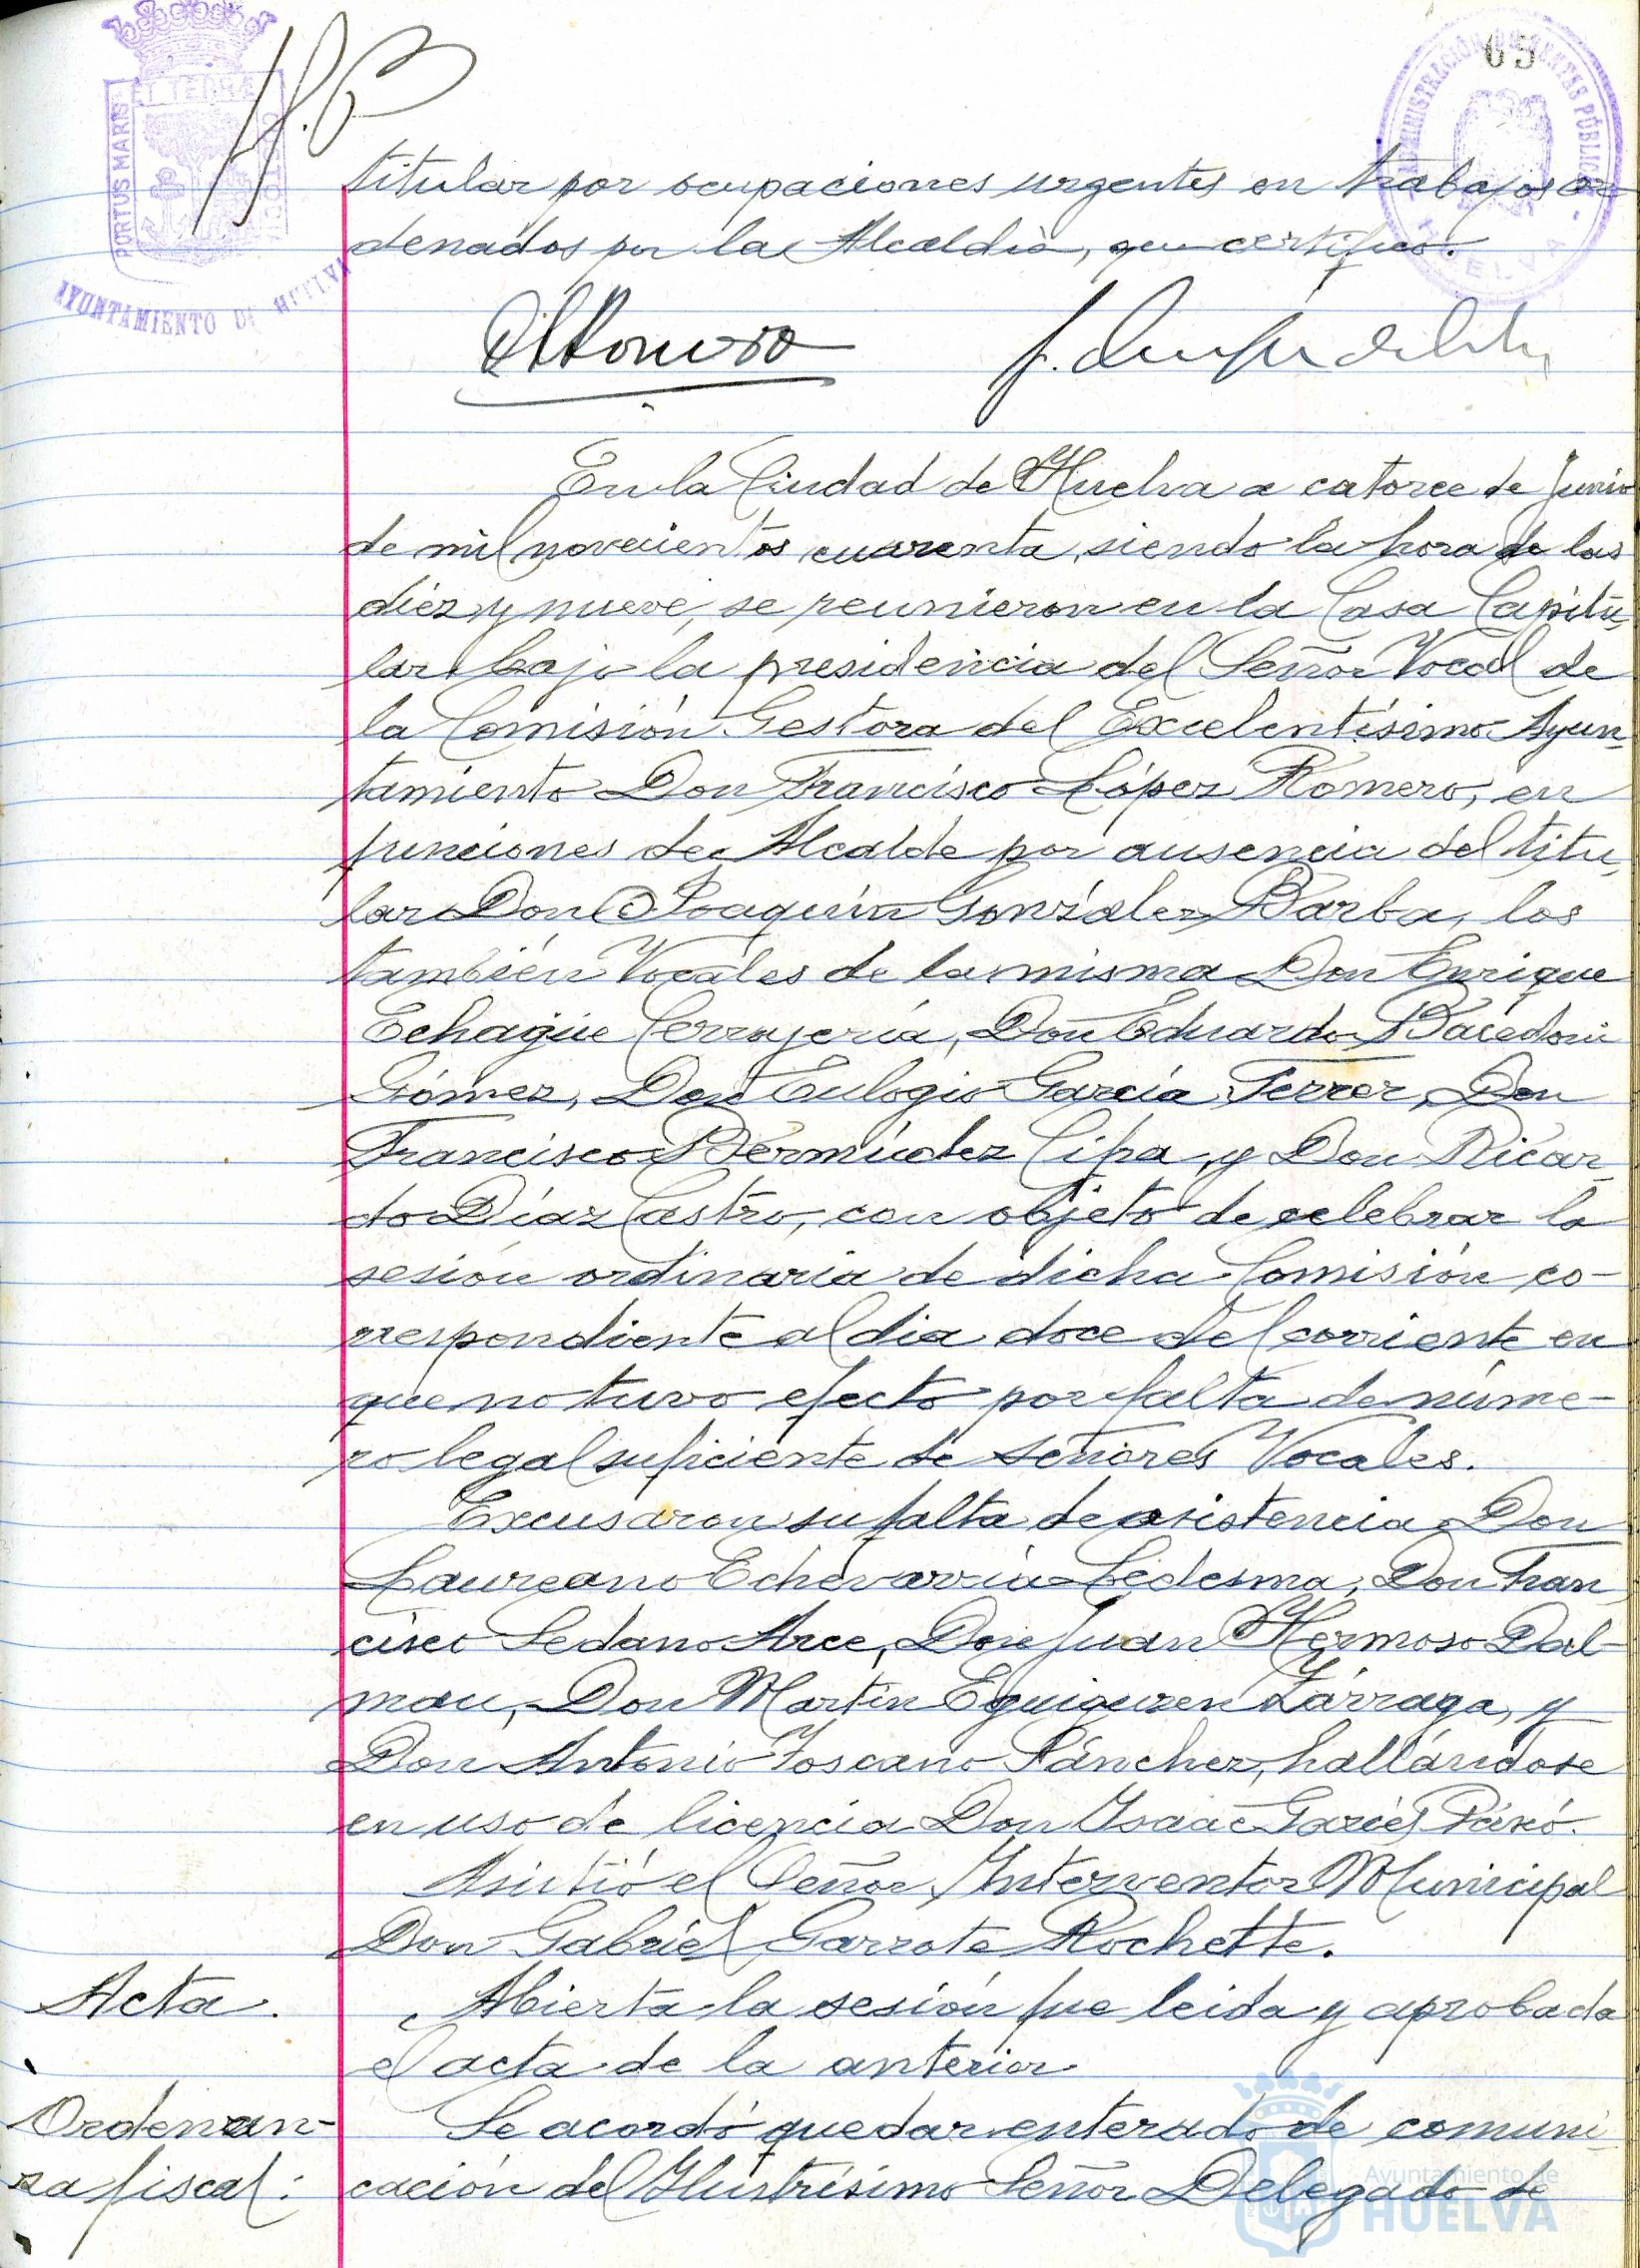 65
PORTUS MARIS ET TERRÆ CUSTODIA
AYUNTAMIENTO DE HUELVA
ADMINISTRACIÓN DE RENTAS PÚBLICAS
HUELVA
titular por ocupaciones urgentes en trabajos or
denados por la Alcaldia, que certifico.
En la Ciudad de Huelva a catorce de Junio
de mil novecientos cuarenta, siendo la hora de las
diez y nueve, se reunieron en la Casa Capitu-
lar bajo la presidencia del Señor Vocal de
la Comisión Gestora del Excelentísimo Ayun-
tamiento Don Francisco López Romero, en
funciones de Alcalde por ausencia del titu-
lar Don Joaquín González Barba, los
también Vocales de la misma Don Enrique
Echagüe Cerrajería, Don Eduardo Bacedoni
Gómez, Don Eulogio García Ferrer, Don
Francisco Bermúdez Cipa, y Don Ricar-
do Díaz Castro, con objeto de celebrar la
sesión ordinaria de dicha Comisión co-
rrespondiente al dia doce del corriente en
que no tuvo efecto por falta de núme-
ro legal suficiente de señores Vocales.
Excusaron su falta de asistencia Don
Laureano Echevarria Ledesma, Don Fran
cisco Sedano Arce, Don Juan Hermoso Dal-
mau, Don Martín Eguiguren Lárraga, y
Don Antonio Toscano Sánchez, hallándose
en uso de licencia Don Ysaac
Asistió el Señor Ynterventor Municipal
Don Gabriel Garrote Rochette.
Acta.
Abierta la sesión fue leida y aprobada
el acta de la anterior.
Ordenan-
za fiscal:
Se acordó quedar enterado de comuni-
cación del Ylustrísimo Señor Delegado de
Ayuntamiento de
HUELVA